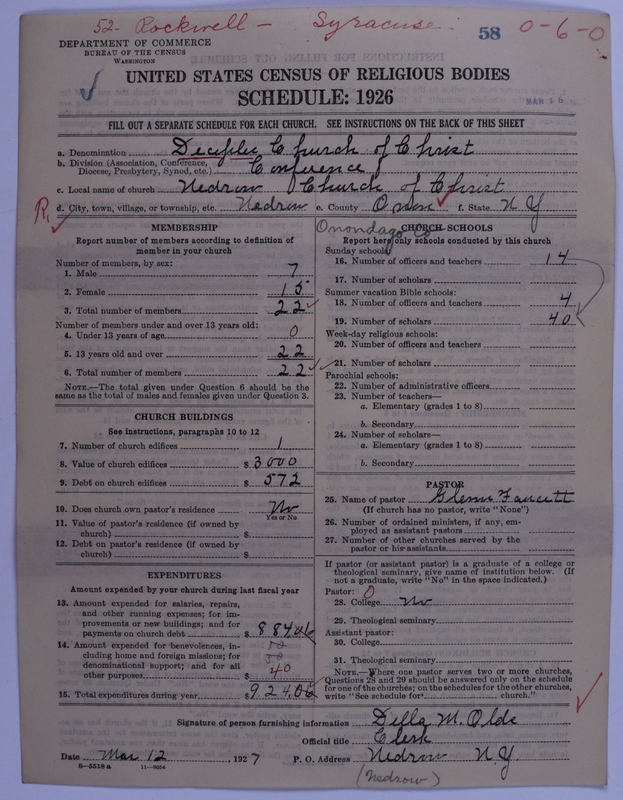 52. Rockwell - Syracuse. 58 0-6-0
DEPARTMENT OF COMMERCE
BUREAU OF THE CENSUS
WASHINGTON
UNITED STATES CENSUS OF RELIGIOUS BODIES
SCHEDULE: 1926
MAR 16
FILL OUT A SEPARATE SCHEDULE FOR EACH CHURCH. SEE INSTRUCTIONS ON THE BACK OF THIS SHEET
a. Denomination Deciples Church of Christ
b. Division (Association, Conference, Diocese, Presbytery, Synod, etc.) Conference
c. Local name of church Nedrow Church of Christ
R. d. City, town, village, or township, etc. Nedrow e. County Onon f. State N Y
Onondaga Co
MEMBERSHIP
Report number of members according to definition of
member in your church
Number of members, by sex:
1. Male 7
2. Female 15
3. Total number of members 22
Number of members under and over 13 years old:
4. Under 13 years of age 0
5. 13 years old and over 22
6. Total number of members 22
NOTE.—The total given under Question 6 should be
same as the total of males and females given under Question 3.
CHURCH BUILDINGS
See instructions, paragraphs 10 to 12
7. Number of church edifices 1
8. Value of church edifices $ 3000
9. Debt on church edifices $ 572
10. Does church own pastor's residence No
Yes or No
11. Value of pastor's residence (if owned by
church) $
12. Debt on pastor's residence (if owned by
church) $
EXPENDITURES
Amount expended by your church during last fiscal year
13. Amount expended for salaries, repairs,
and other running expenses; for im-
provements or new buildings; and for
payments on church debt $ 884.06
14. Amount expended for benevolences, in-
cluding home and foreign missions; for
denominational support; and for all
other purposes $ 40
15. Total expenditures during year $ 924.06
CHURCH SCHOOLS
Report here only schools conducted by this church
Sunday schools:
16. Number of officers and teachers 14
17. Number of scholars
Summer vacation Bible schools:
18. Number of officers and teachers 4
19. Number of scholars 40
Week-day religious schools:
20. Number of officers and teachers
21. Number of scholars
Parochial schools:
22. Number of administrative officers
23. Number of teachers—
a. Elementary (grades 1 to 8)
b. Secondary
24. Number of scholars—
a. Elementary (grades 1 to 8)
b. Secondary
PASTOR
25. Name of pastor Glenn Fancett
(If church has no pastor, write "None")
26. Number of ordained ministers, if any, em-
ployed as assistant pastors
27. Number of other churches served by the
pastor or his assistants
If pastor (or assistant pastor) is a graduate of a college or
theological seminary, give name of institution below. (If
not a graduate, write "No" in the space indicated.)
Pastor: 0
28. College No
29. Theological seminary
Assistant pastor:
30. College
31. Theological seminary
NOTE.—Where one pastor serves two or more churches,
Questions 28 and 29 should be answered only on the schedule
for one of the churches; on the schedules for the other churches,
write "See schedule for church."
Signature of person furnishing information Della M. Olds
Official title Clerk
Date Mar 12, 1927 P. O. Address Nedrow N Y
8-5518 a 11-9054
(Nedrow)